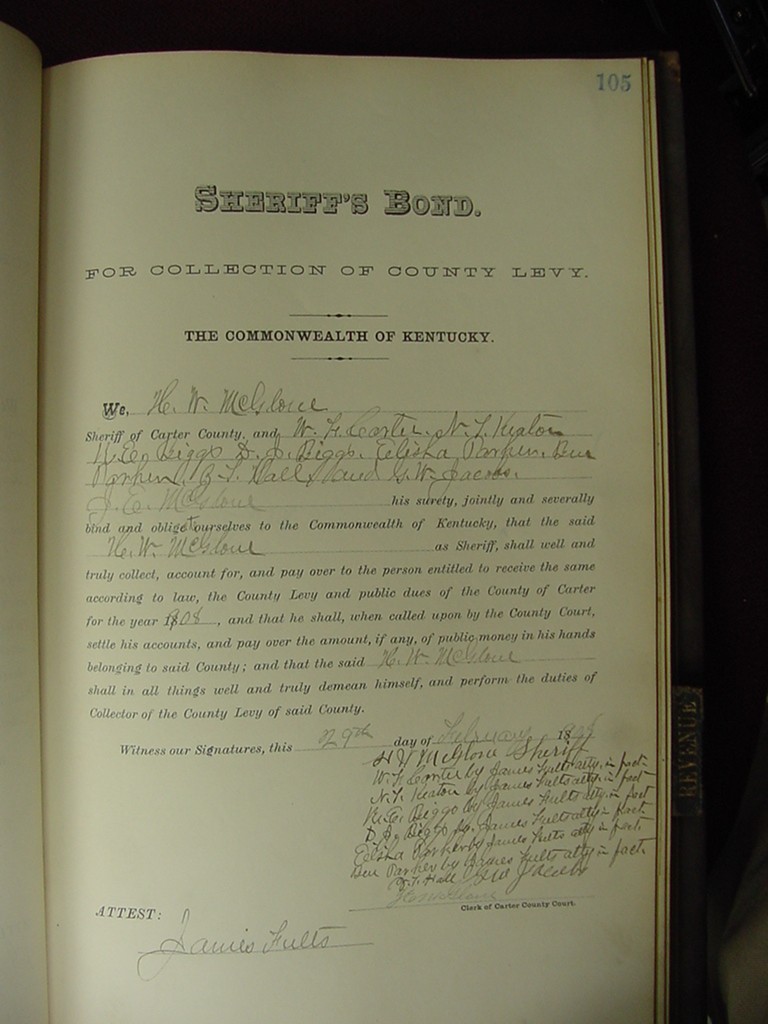 105
SHERIFF'S BOND.
FOR COLLECTION OF COUNTY LEVY.
THE COMMONWEALTH OF KENTUCKY.
We, H. W. McGlone
Sheriff of Carter County, and W. F. Carter, N. T. Keaton
W. E. Biggs D. D. Biggs. Elisha Parker, Ben
Parker, R. T. Hall, and G. W. Jacobs.
J. E. McGlone his surety, jointly and severally
bind and oblige ourselves to the Commonwealth of Kentucky, that the said
H. W. McGlone as Sheriff, shall well and
truly collect, account for, and pay over to the person entitled to receive the same
according to law, the County Levy and public dues of the County of Carter
for the year 1908, and that he shall, when called upon by the County Court,
settle his accounts, and pay over the amount, if any, of public money in his hands
belonging to said County; and that the said H. W. McGlone
shall in all things well and truly demean himself, and perform the duties of
Collector of the County Levy of said County.
Witness our Signatures, this 29th day of February 1908
H W McGlone Sheriff
W. F. Carter by James Fults atty. in fact
N. T. Keaton by James Fults atty. in fact
W. E. Biggs by James Fults atty. in fact
D. D. Biggs by James Fults atty in fact
Elisha Parker by James Fults atty in fact.
Ben Parker by James Fults atty in fact.
R. T. Hall Geo W Jacobs
Clerk of Carter County Court.
ATTEST:
James Fults
REVENUE